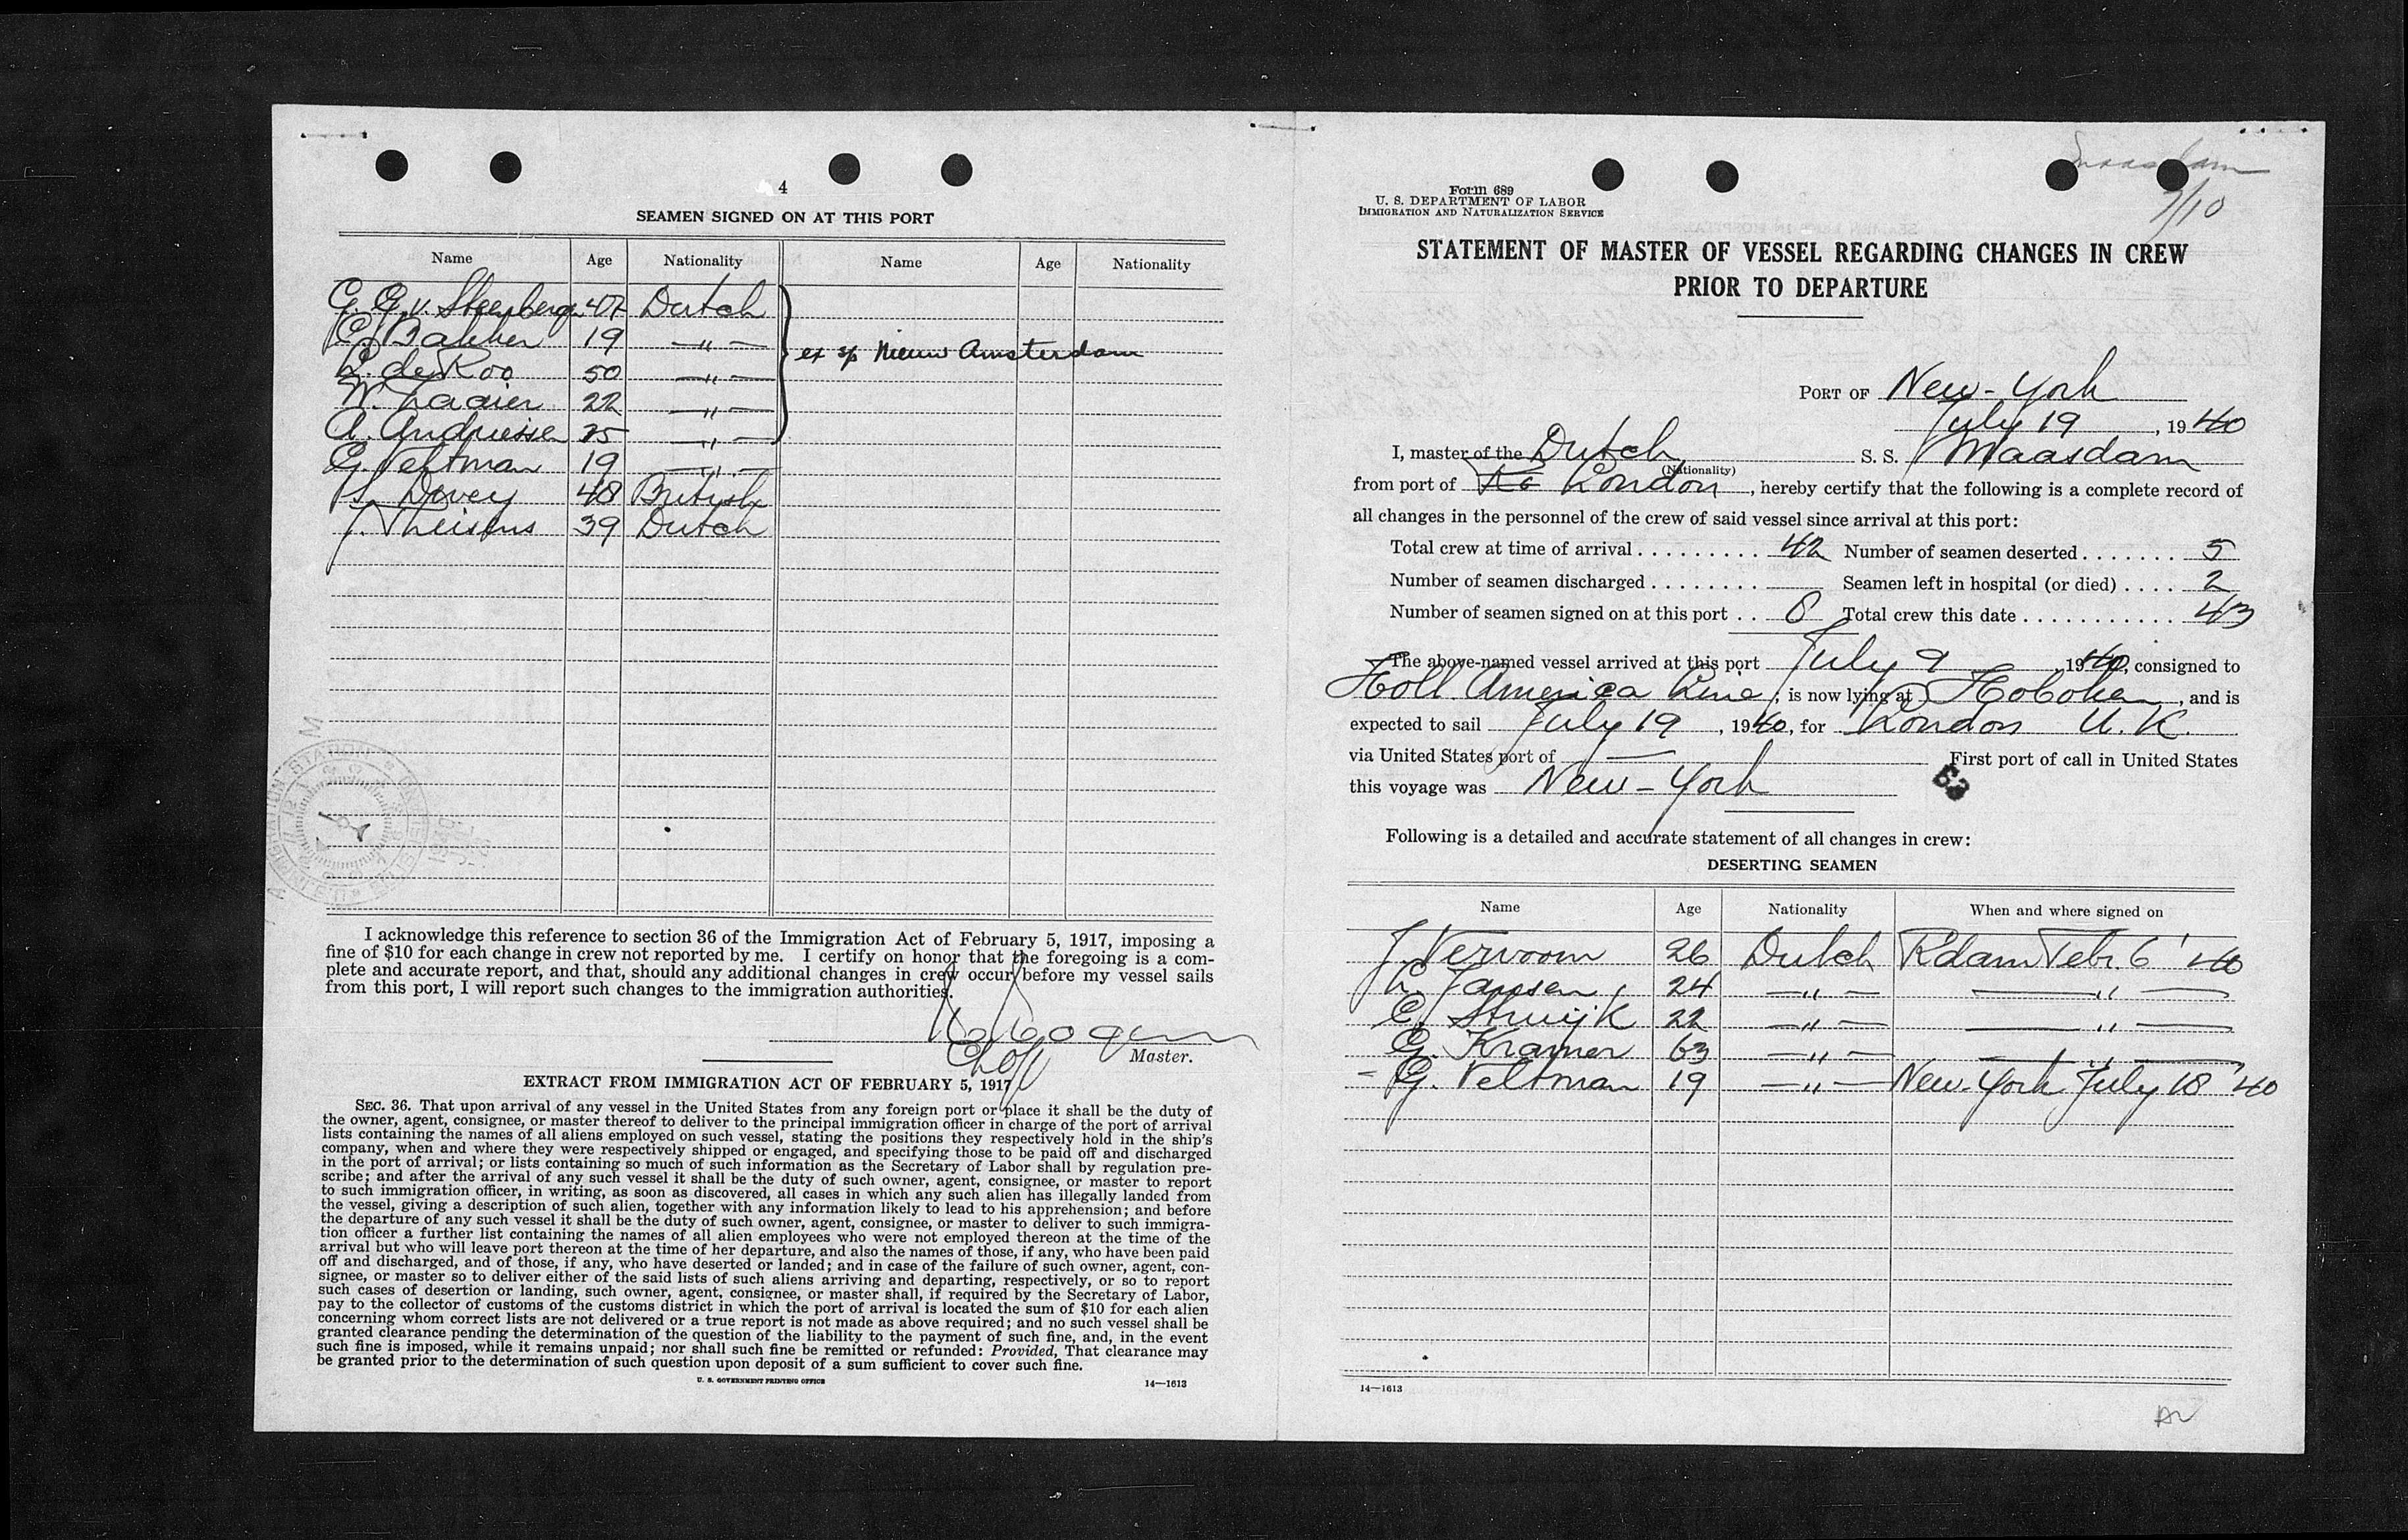 4
SEAMEN SIGNED ON AT THIS PORT
Name Age Nationality Name Age Nationality
G. G. v. Steenbergen 47 Dutch
C. Bakker 19 —〃—
L. de Roo 50 —〃—
ex s/s Nieuw Amsterdam
W. Zaaier 22 —〃—
A. Andriesse 25 —〃—
G. Veltman 19 —〃—
S. Dovey 48 British
J. Theisens 39 Dutch
I acknowledge this reference to section 36 of the Immigration Act of February 5, 1917, imposing a
fine of $10 for each change in crew not reported by me. I certify on honor that the foregoing is a com-
plete and accurate report, and that, should any additional changes in crew occur before my vessel sails
from this port, I will report such changes to the immigration authorities.
Master.
EXTRACT FROM IMMIGRATION ACT OF FEBRUARY 5, 1917
SEC. 36. That upon arrival of any vessel in the United States from any foreign port or place it shall be the duty of
the owner, agent, consignee, or master thereof to deliver to the principal immigration officer in charge of the port of arrival
lists containing the names of all aliens employed on such vessel, stating the positions they respectively hold in the ship's
company, when and where they were respectively shipped or engaged, and specifying those to be paid off and discharged
in the port of arrival; or lists containing so much of such information as the Secretary of Labor shall by regulation pre-
scribe; and after the arrival of any such vessel it shall be the duty of such owner, agent, consignee, or master to report
to such immigration officer, in writing, as soon as discovered, all cases in which any such alien has illegally landed from
the vessel, giving a description of such alien, together with any information likely to lead to his apprehension; and before
the departure of any such vessel it shall be the duty of such owner, agent, consignee, or master to deliver to such immigra-
tion officer a further list containing the names of all alien employees who were not employed thereon at the time of the
arrival but who will leave port thereon at the time of her departure, and also the names of those, if any, who have been paid
off and discharged, and of those, if any, who have deserted or landed; and in case of the failure of such owner, agent, con-
signee, or master so to deliver either of the said lists of such aliens arriving and departing, respectively, or so to report
such cases of desertion or landing, such owner, agent, consignee, or master shall, if required by the Secretary of Labor,
pay to the collector of customs of the customs district in which the port of arrival is located the sum of $10 for each alien
concerning whom correct lists are not delivered or a true report is not made as above required; and no such vessel shall be
granted clearance pending the determination of the question of the liability to the payment of such fine, and, in the event
such fine is imposed, while it remains unpaid; nor shall such fine be remitted or refunded: Provided, That clearance may
be granted prior to the determination of such question upon deposit of a sum sufficient to cover such fine.
U. S. GOVERNMENT PRINTING OFFICE 14—1613
Maasdam
7/10
Form 689
U. S. DEPARTMENT OF LABOR
IMMIGRATION AND NATURALIZATION SERVICE
STATEMENT OF MASTER OF VESSEL REGARDING CHANGES IN CREW
PRIOR TO DEPARTURE
PORT OF New-York
July 19, 1940
I, master of the Dutch S. S. Maasdam
(Nationality)
from port of London, hereby certify that the following is a complete record of
all changes in the personnel of the crew of said vessel since arrival at this port:
Total crew at time of arrival ......... 42 Number of seamen deserted ....... 5
Number of seamen discharged ........ Seamen left in hospital (or died) .... 2
Number of seamen signed on at this port .. 8 Total crew this date ............ 43
The above-named vessel arrived at this port July 9, 1940, consigned to
Holl America Line; is now lying at Hoboken, and is
expected to sail July 19, 1940, for London U.K.
via United States port of — First port of call in United States
this voyage was New-York
63
Following is a detailed and accurate statement of all changes in crew:
DESERTING SEAMEN
Name Age Nationality When and where signed on
J. Vervoorn 26 Dutch Rdam Febr. 6 '40
L. Jansen 24 —〃— —〃—
C. Struijk 22 —〃— —〃—
G. Kramer 63 —〃— —〃—
- G. Veltman 19 —〃— New-York July 18 '40
14—1613